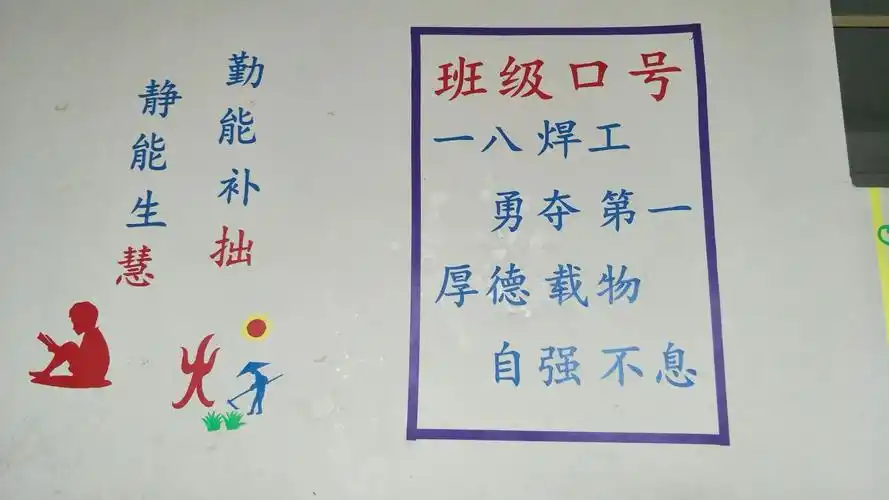 勤能补拙
静能生慧
班级口号
一八焊工
勇夺第一
厚德载物
自强不息